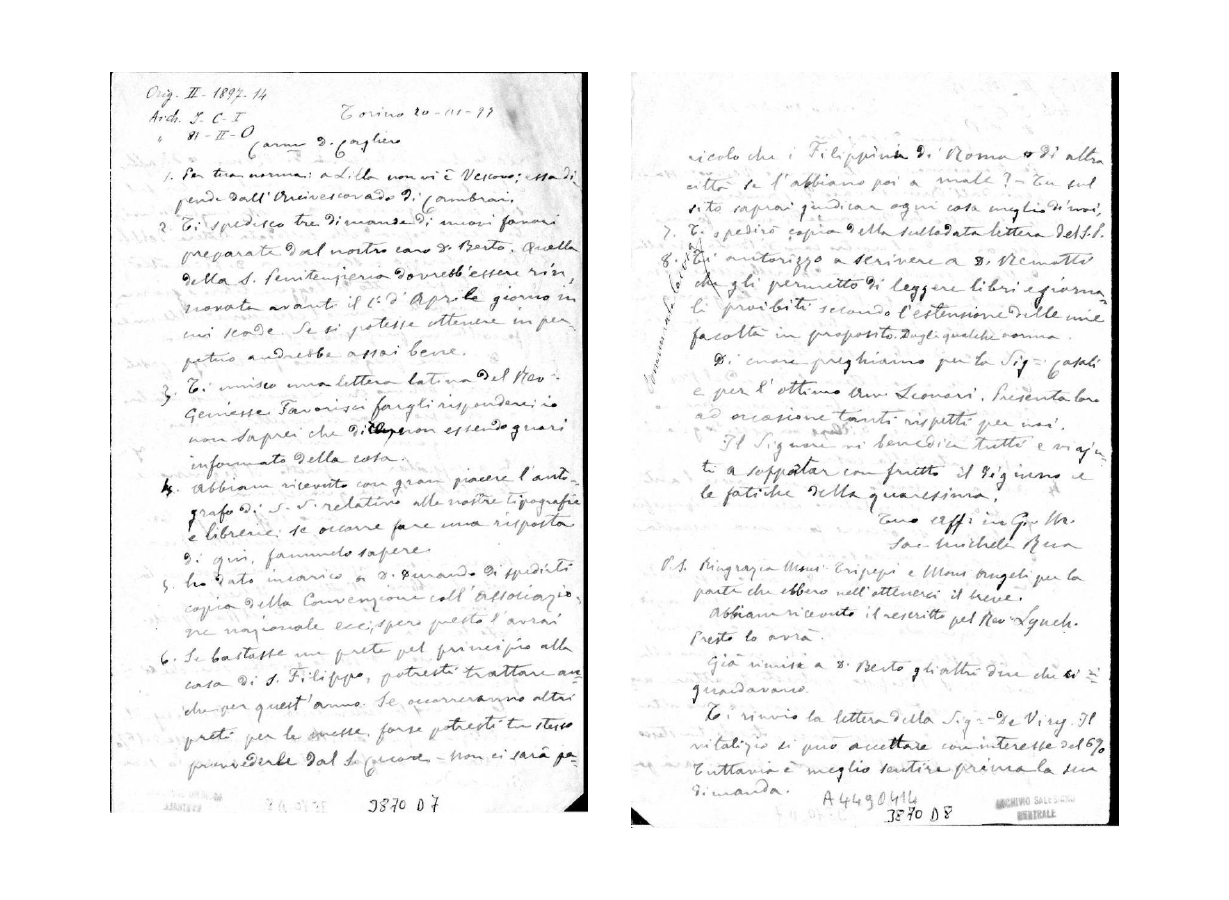 Orig. II - 1897-14
Arch. S. C. I
" 81-II-O
Torino 20-III-97
Carmo D. Cagliero
1. Per tua norma: a Lilla non vi è Vescovo; essa di
pende dall'Arcivescovado di Cambrai.
2. Ti spedisco tre dimande di nuovi favori
preparate dal nostro caro D. Berto. Quella
della S. Penitenzieria dovrebb'essere rin
novata avanti il 1° d'Aprile giorno in
cui scade. Se si potesse ottenere in per-
petuo andrebbe assai bene.
3. Ti unisco una lettera latina del Rev.
Geniesse. Favorisci fargli rispondere; io
non saprei che dir non essendo guari
informato della cosa.
4. Abbiam ricevuto con gran piacere l'auto-
grafo di S. S. relativo alle nostre tipografie
e librerie; se occorre fare una risposta
di qui, fammelo sapere.
5. Ho dato incarico a D. Durando di spedirti
copia della Convenzione coll'Associazio-
ne nazionale ecc; spero presto l'avrai
6. Se bastasse un prete pel principio alla
casa di S. Filippo, potresti trattare an
che per quest'anno. Se occorreranno altri
preti per le messe, forse potresti tu stesso
provvederle dal S. Cuore - Non ci sarà pe-
3870 D7
ricolo che i Filippini di Roma o di altra
città se l'abbiano poi a male? - Tu sul
sito saprai giudicar ogni cosa meglio di noi,
7. Ti spedirò copia della sullodata lettera del S. P.
8. Ti autorizzo a scrivere a D.
che gli permetto di leggere libri e giorna-
li proibiti secondo l'estensione delle mie
facoltà in proposito. Dagli qualche norma.
Di cuore preghiamo per la Sig. Casali
e per l'ottimo Avv. Leonori. Presenta loro
ad occasione tanti rispetti per noi.
Il Signore vi benedica tutti e vi aju-
ti a sopportar con frutto il digiuno e
le fatiche della quaresima.
Tuo aff. in G. M.
Sac. Michele Rua
P. S. Ringrazia Mons. Tripepi e Mons Angeli per la
parte che ebbero nell'ottenerci il breve.
Abbiam ricevuto il rescritto pel Rev. Lynch.
Presto lo avrà.
Già rimisi a D. Berto gli altri due che ci ri-
guardavano.
Ti rinvio la lettera della Sig. De Virey. Il
vitalizio si può accettare con interesse del 6%
Tuttavia è meglio sentire prima la sua
dimanda.
A4490414
3870 D8
ARCHIVIO SALESIANO
CENTRALE